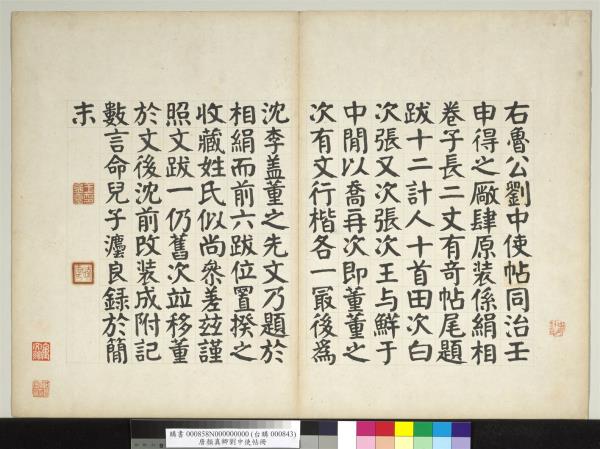 右魯公劉中使帖同治壬
申得之廠肆原装係絹相
卷子長二丈有奇帖尾題
跋十二計人十首田次白
次張又次張次王与鮮于
中閒以喬再次即董董之
次有文行楷各一最後為
沈李盖董之先文乃題於
相絹而前六跋位置揆之
收藏姓氏似尚參差玆謹
照文跋一仍舊次竝移董
於文後沈前改装成附記
數言命兒子瀍良錄於簡
末
購書 000858N000000000 (台購 000843)
唐顏真卿劉中使帖冊